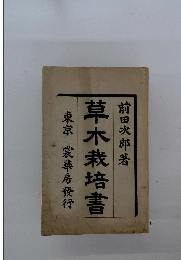 前田次郎著
草木栽培書
東京 裳華房發行